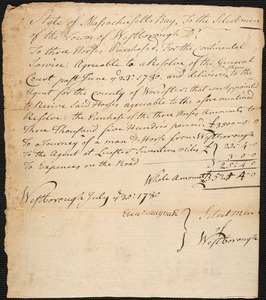 State of Massachusetts Bay, To the Selectmen
of the Town of Westborough Dr
To three Horses Purchased, For the Continental
Service; Agreable to a Resolve of the General
Court past June ye 22d 1780. and delivering to the
Agent for the County of Worcester, that was appointed
to Receive Said Horses agreable to the aforementioned
Resolve: the Purchase of the three Horses Amount
Three Thousand five Hundred pounds £3500-0-0
To a Journey of a man & Horse from Westborough
To the Agent at miles
To Expences on the Road
Whole Amount £
Westborough July ye 20: 1780
Selectmen
Westborough